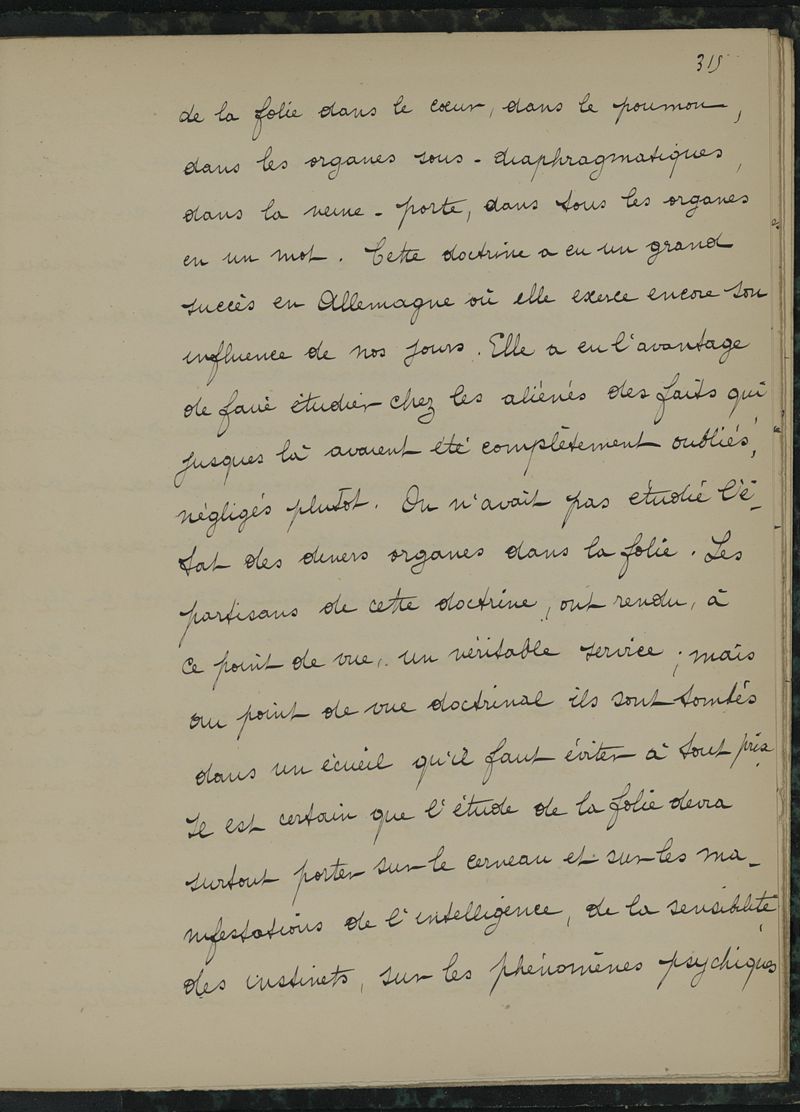 315
de la folie dans le cœur, dans le poumon,
dans les organes sous-diaphragmatiques,
dans la veine-porte, dans tous les organes
en un mot. Cette doctrine a eu un grand
succès en Allemagne où elle exerce encore son
influence de nos jours. Elle a eu l'avantage
de faire étudier chez les aliénés des faits qui
jusques là avaient été complètement oubliés,
négligés plutôt. On n'avait pas étudié l'é-
tat des divers organes dans la folie. Les
partisans de cette doctrine, ont rendu, à
ce point de vue, un véritable service ; mais
au point de vue doctrinal ils sont tombés
dans un écueil qu'il faut éviter à tout prix
Il est certain que l'étude de la folie devra
surtout porter sur le cerveau et sur les ma-
nifestations de l'intelligence, de la sensibilité
des instincts, sur les phénomènes psychiques